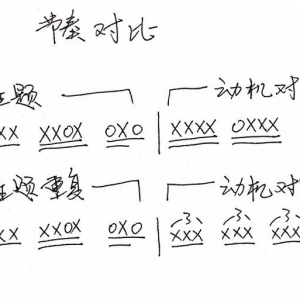 节奏对比
主题 动机对
XX XXOX OXO | XXXX OXXX
主题重复 动机对
XX XXOX OXO | 3 XXX 3 XXX 3 XXX